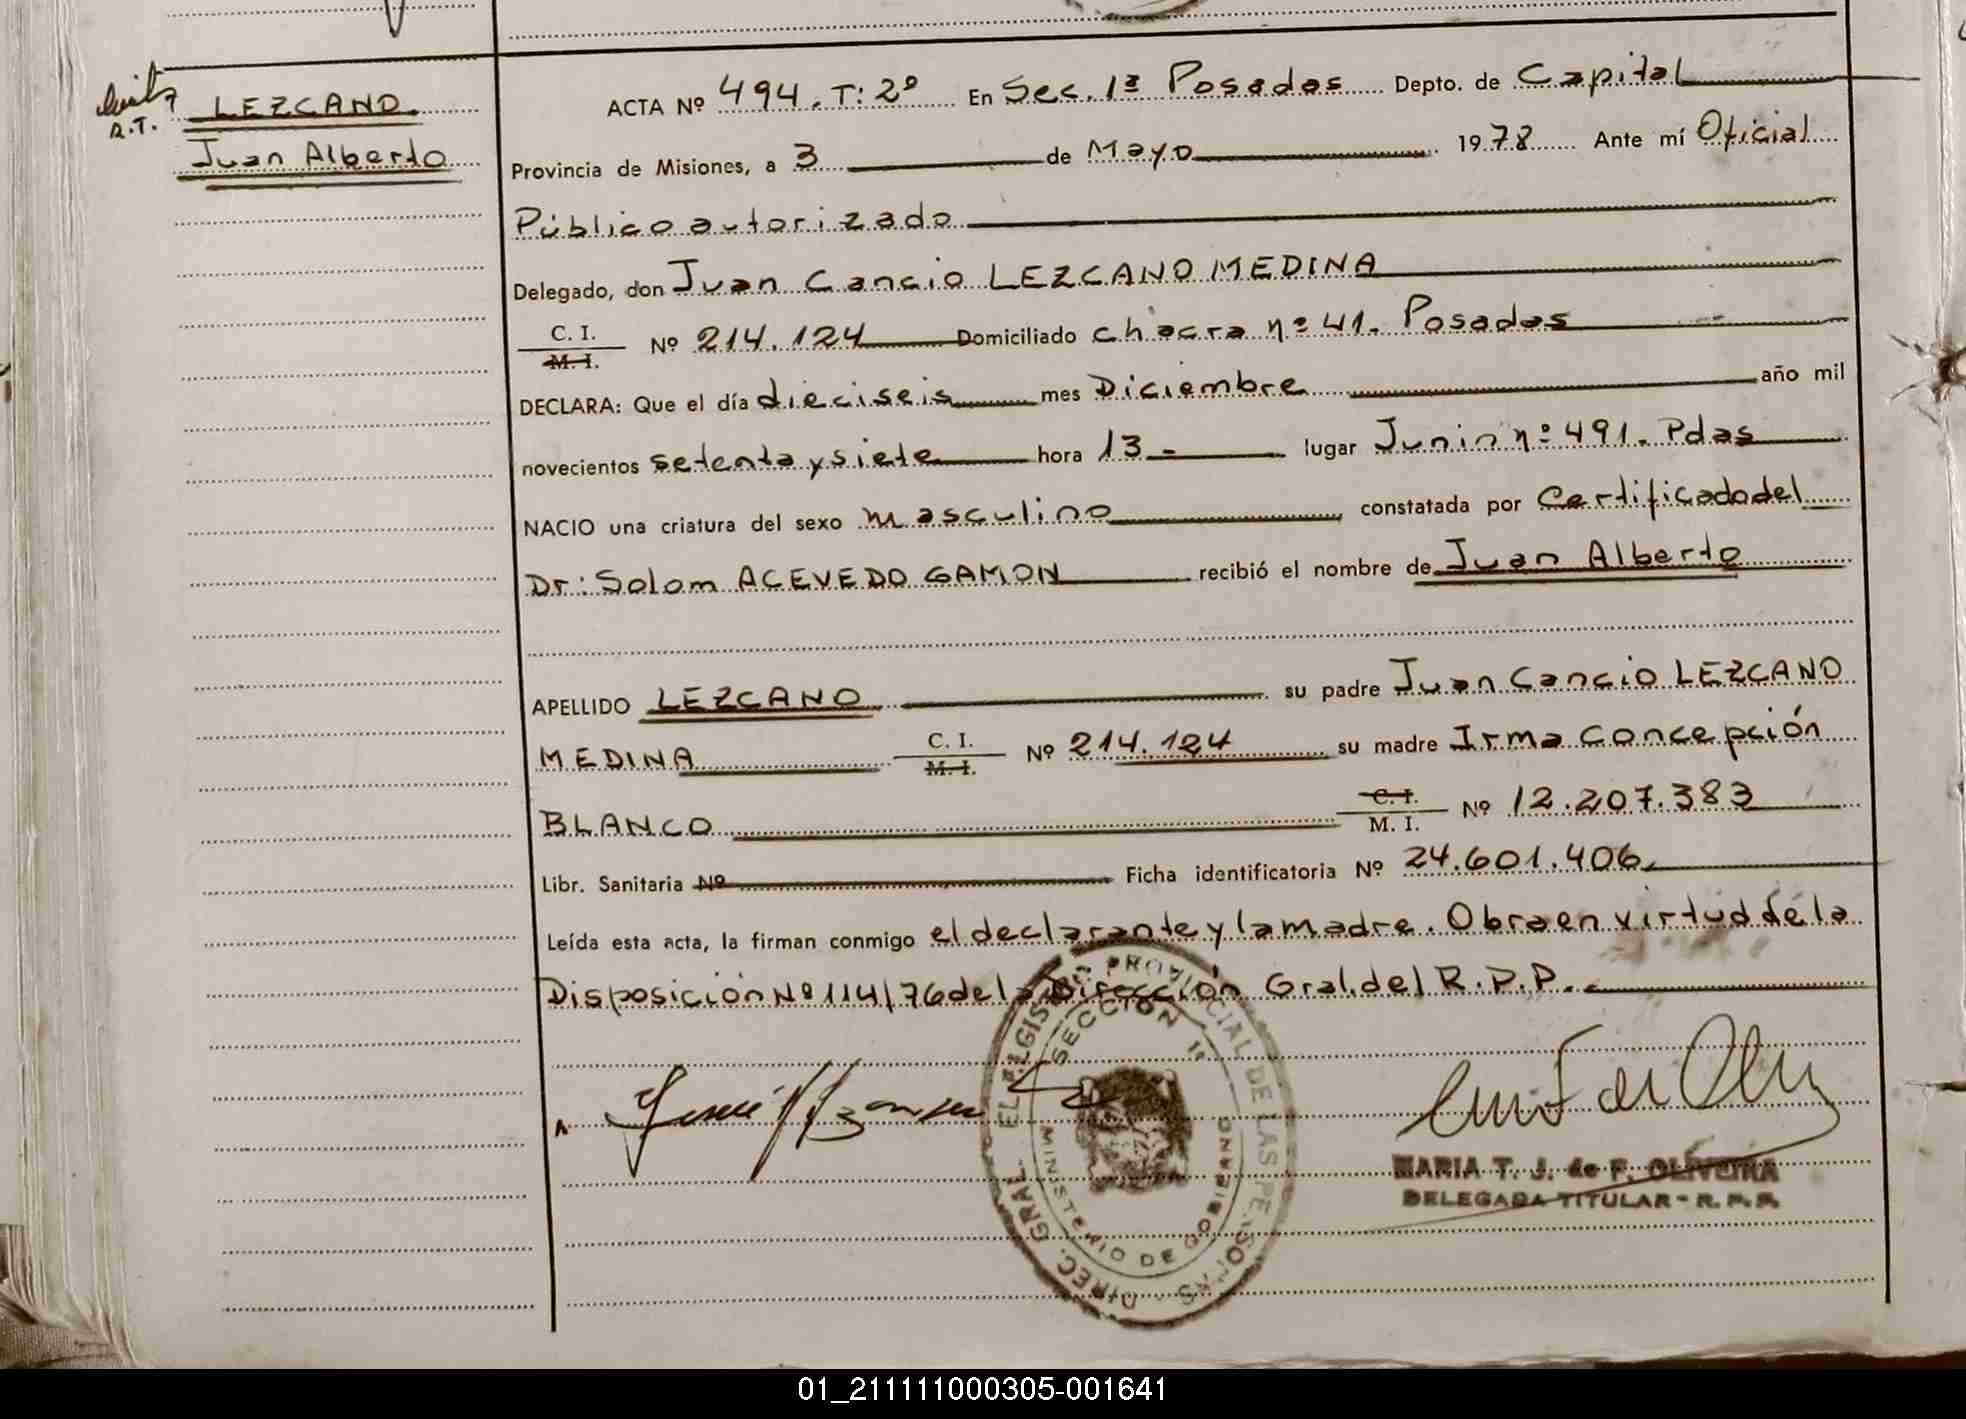 R.T.
LEZCANO
Juan Alberto
ACTA Nº 494. T: 2º En Sec. 1ª Posadas Depto. de Capital
Provincia de Misiones, a 3 de Mayo 1978 Ante mí Oficial
Público autorizado
Delegado, don Juan Cancio LEZCANO MEDINA
C. I. M. I. Nº 214.124 Domiciliado chacra nº 41. Posadas
DECLARA: Que el día dieciseis mes Diciembre año mil
novecientos setenta y siete hora 13- lugar Junin nº 491. Pdas
NACIO una criatura del sexo masculino constatada por Certificado del
Dr: Solom ACEVEDO GAMON recibió el nombre de Juan Alberto
APELLIDO LEZCANO su padre Juan Cancio LEZCANO
MEDINA C. I. M. I. Nº 214.124 su madre Irma Concepción
BLANCO C. I. M. I. Nº 12.207.383
Libr. Sanitaria Nº Ficha identificatoria Nº 24.601.406
Leída esta acta, la firman conmigo el declarante y la madre. Obra en virtud de la
Disposición Nº 114/76 de la Dirección Gral. del R.P.P.
DIREC. GRAL. DEL REGISTRO PROVINCIAL DE LAS PERSONAS
SECCION 1ª
MINISTERIO DE GOBIERNO
MARIA T. J. de F. OLIVEIRA
DELEGADA TITULAR - R. P. P.
01_211111000305-001641